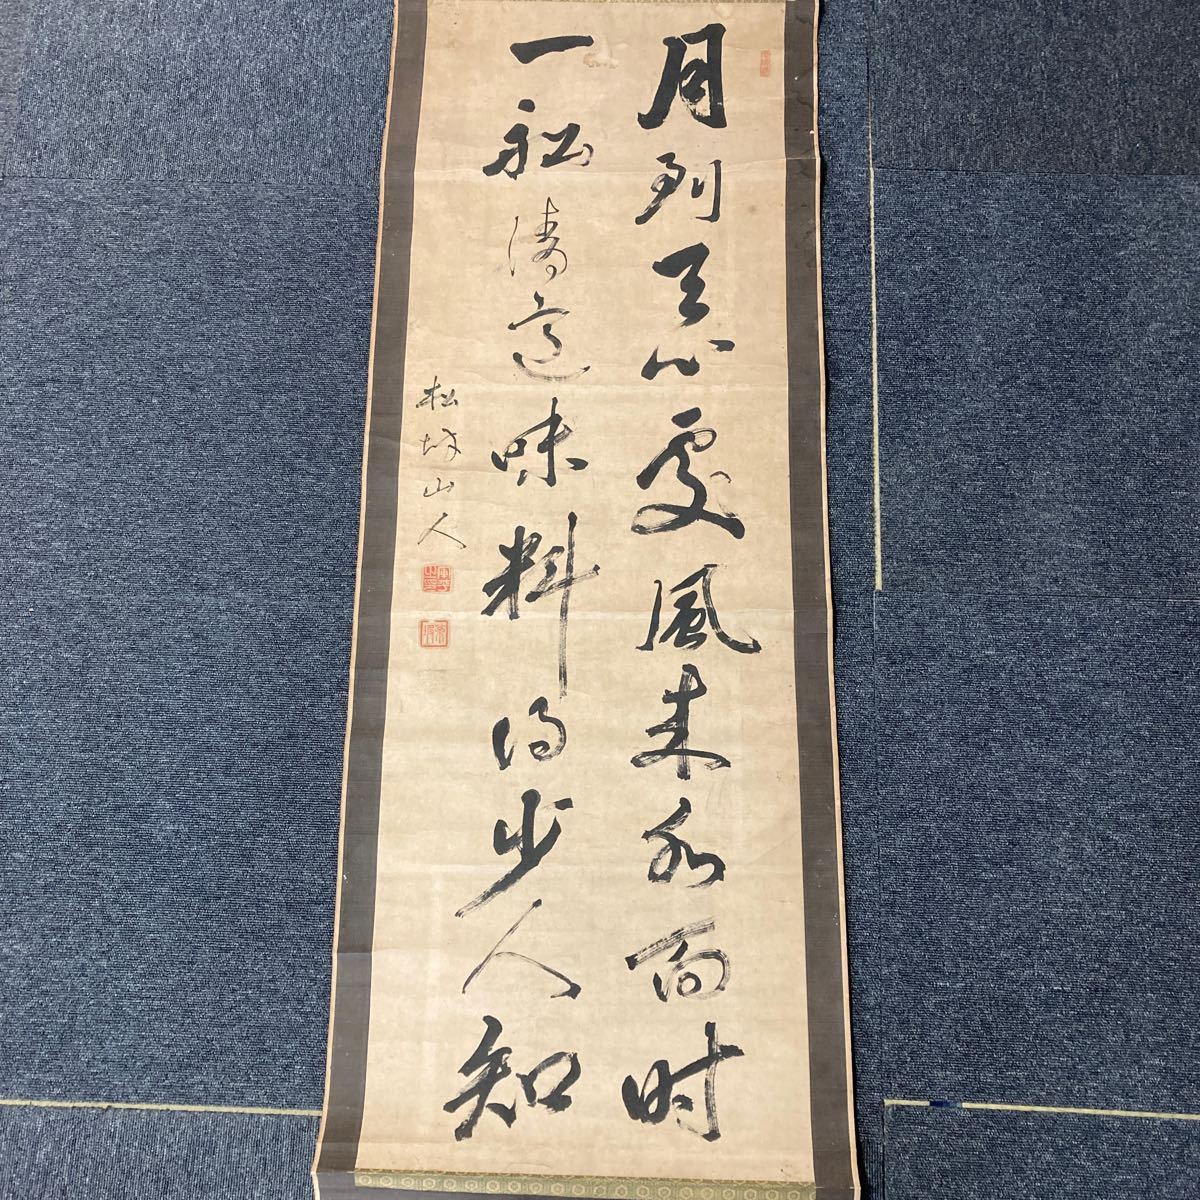 月到天心處風来水面時
一般清意味料得少人知
松山人